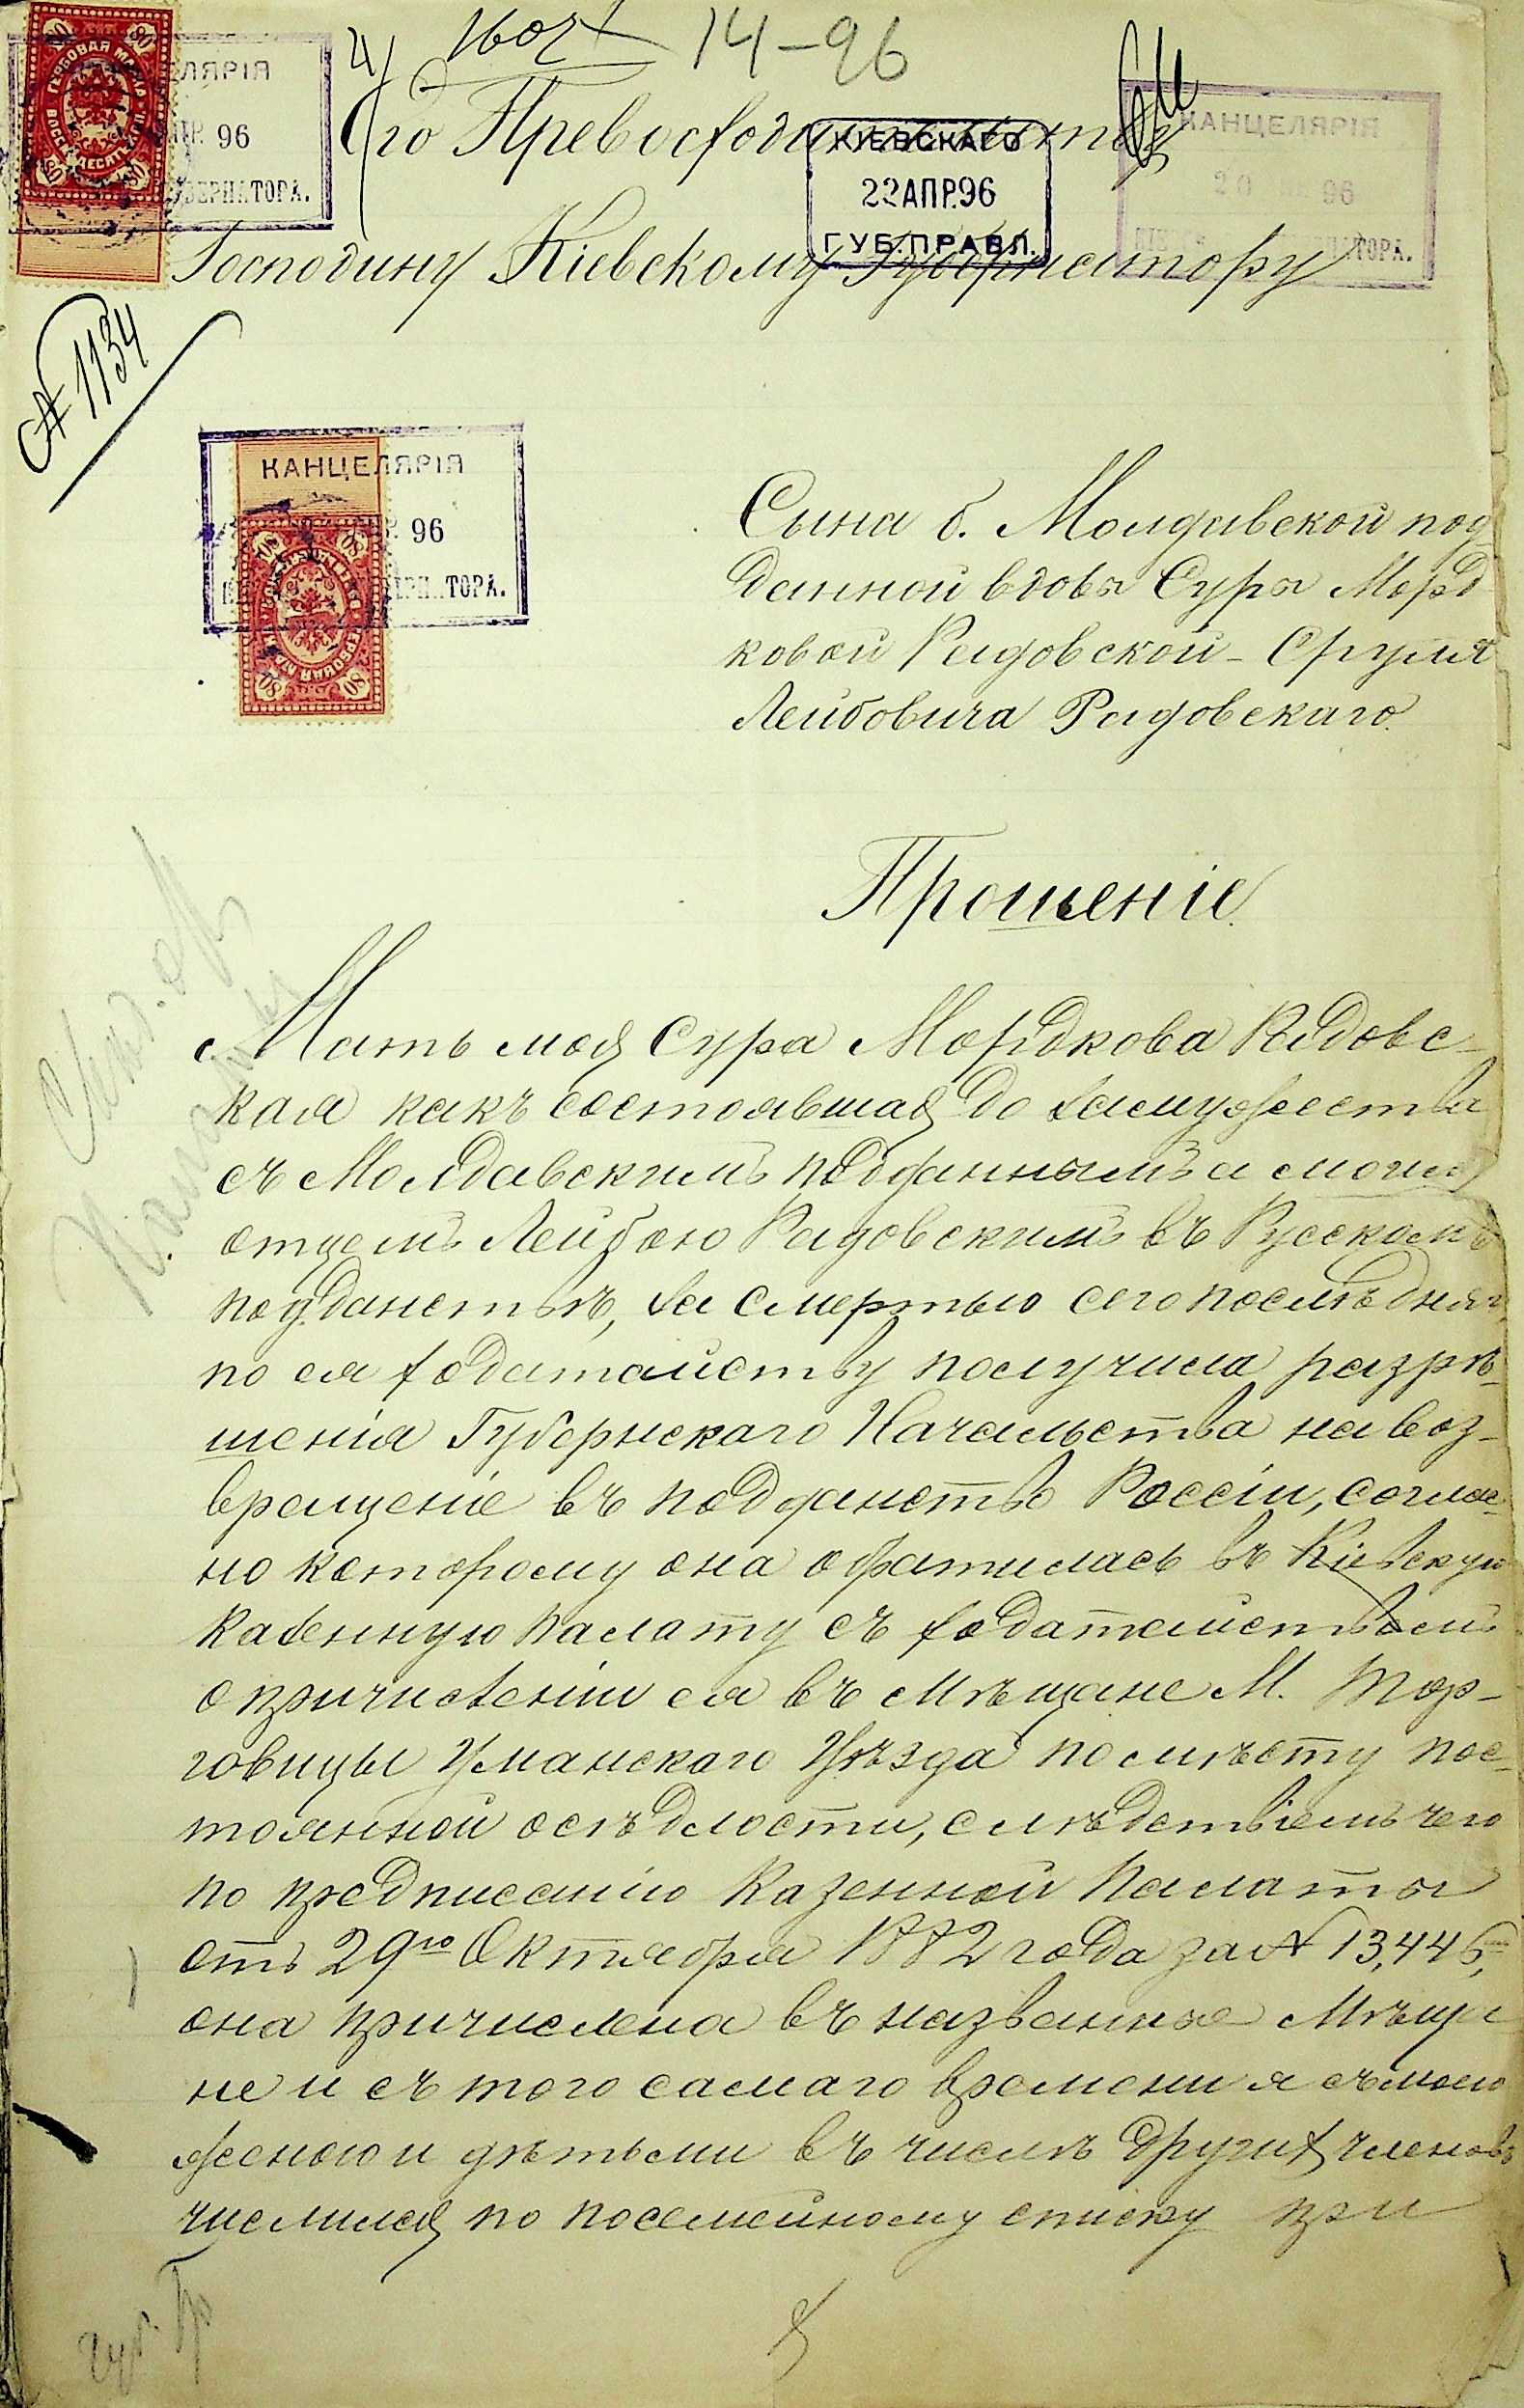 14-96
Его Превосходительству
Господину Кіевскому Губернатору
КІЕВСКАГО
22 АПР. 96
ГУБ. ПРАВЛ.
КАНЦЕЛЯРІЯ
96
№ 1134
КАНЦЕЛЯРІЯ
96
Сына б. Молдавской под
данной вдовы Суры Морд
ковой Радовской - Сруля
Лейбовича Радовскаго.
Прошеніе.
Мать моя Сура Мордкова Радовс-
кая какъ состоявшая до замужества
съ Молдавскимъ подданнымъ а моимъ
отцемъ Лейбою Радовскимъ въ Русскомъ
подданствѣ, за смертью сего послѣдняго,
по ея ходатайству получила разрѣ-
шенія Губернскаго Начальства на воз-
вращеніе въ подданство Россіи, соглас-
но которому она обратилась въ Кіевскую
Казенную Палату съ ходатайствомъ
о причисленіи ея въ мѣщане М. Тор-
говицы Уманскаго Уѣзда по мѣсту пос-
тоянной осѣдлости, слѣдствіемъ чего
по предписанію Казенной Палаты
отъ 29го Октября 1882 года за № 13,446,
она причислена въ названные Мѣща
не и съ того самаго времени я съ моею
женою и дѣтьми въ числѣ другихъ членовъ
числился по посемейному списку при